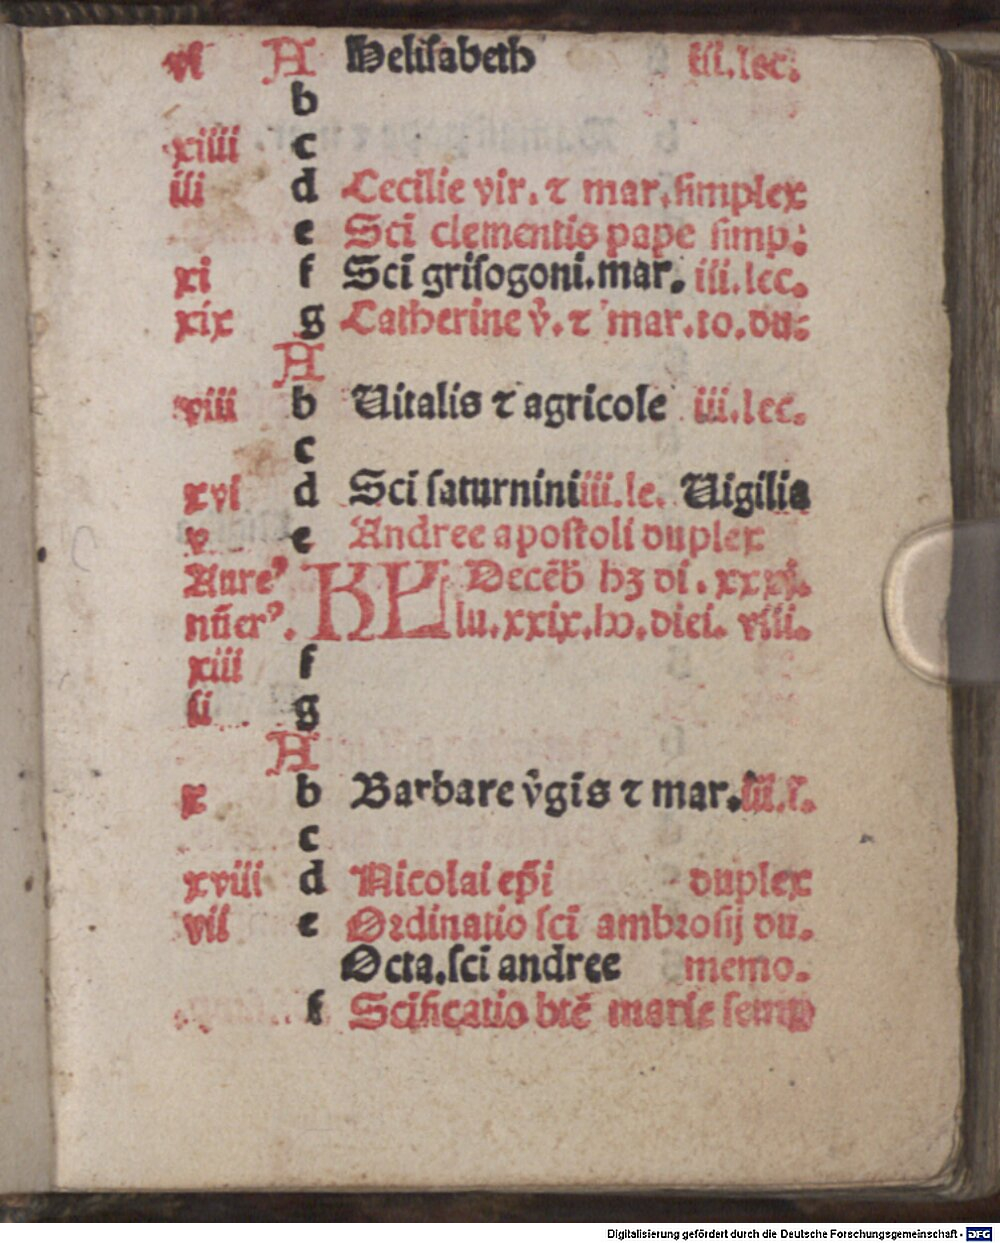 vi A Helisabeth iii.lec.
b
xiiii c
iii d Cecilie vir. ⁊ mar. simplex
e Scī clementis pape simp.
xi f Scī grisogoni.mar. iii.lec.
xix g Catherine v̄. ⁊ mar.to.du:
A
viii b Uitalis ⁊ agricole iii.lec.
c
xvi d Scī saturnini iii.le. Uigilia
v e Andree apostoli duplex
Aureꝰ KL Decēb hꝫ di. xxxi.
nūerꝰ. lu.xxix.ho.diei. viii.
xiii f
ii g
A
x b Barbare v̄gis ⁊ mar.iii.l.
c
xviii d Nicolai ep̄i duplex
vii e Ordinatio scī ambrosij du.
Octa.scī andree memo.
f Scīficatio btē marie semp
Digitalisierung gefördert durch die Deutsche Forschungsgemeinschaft - DFG